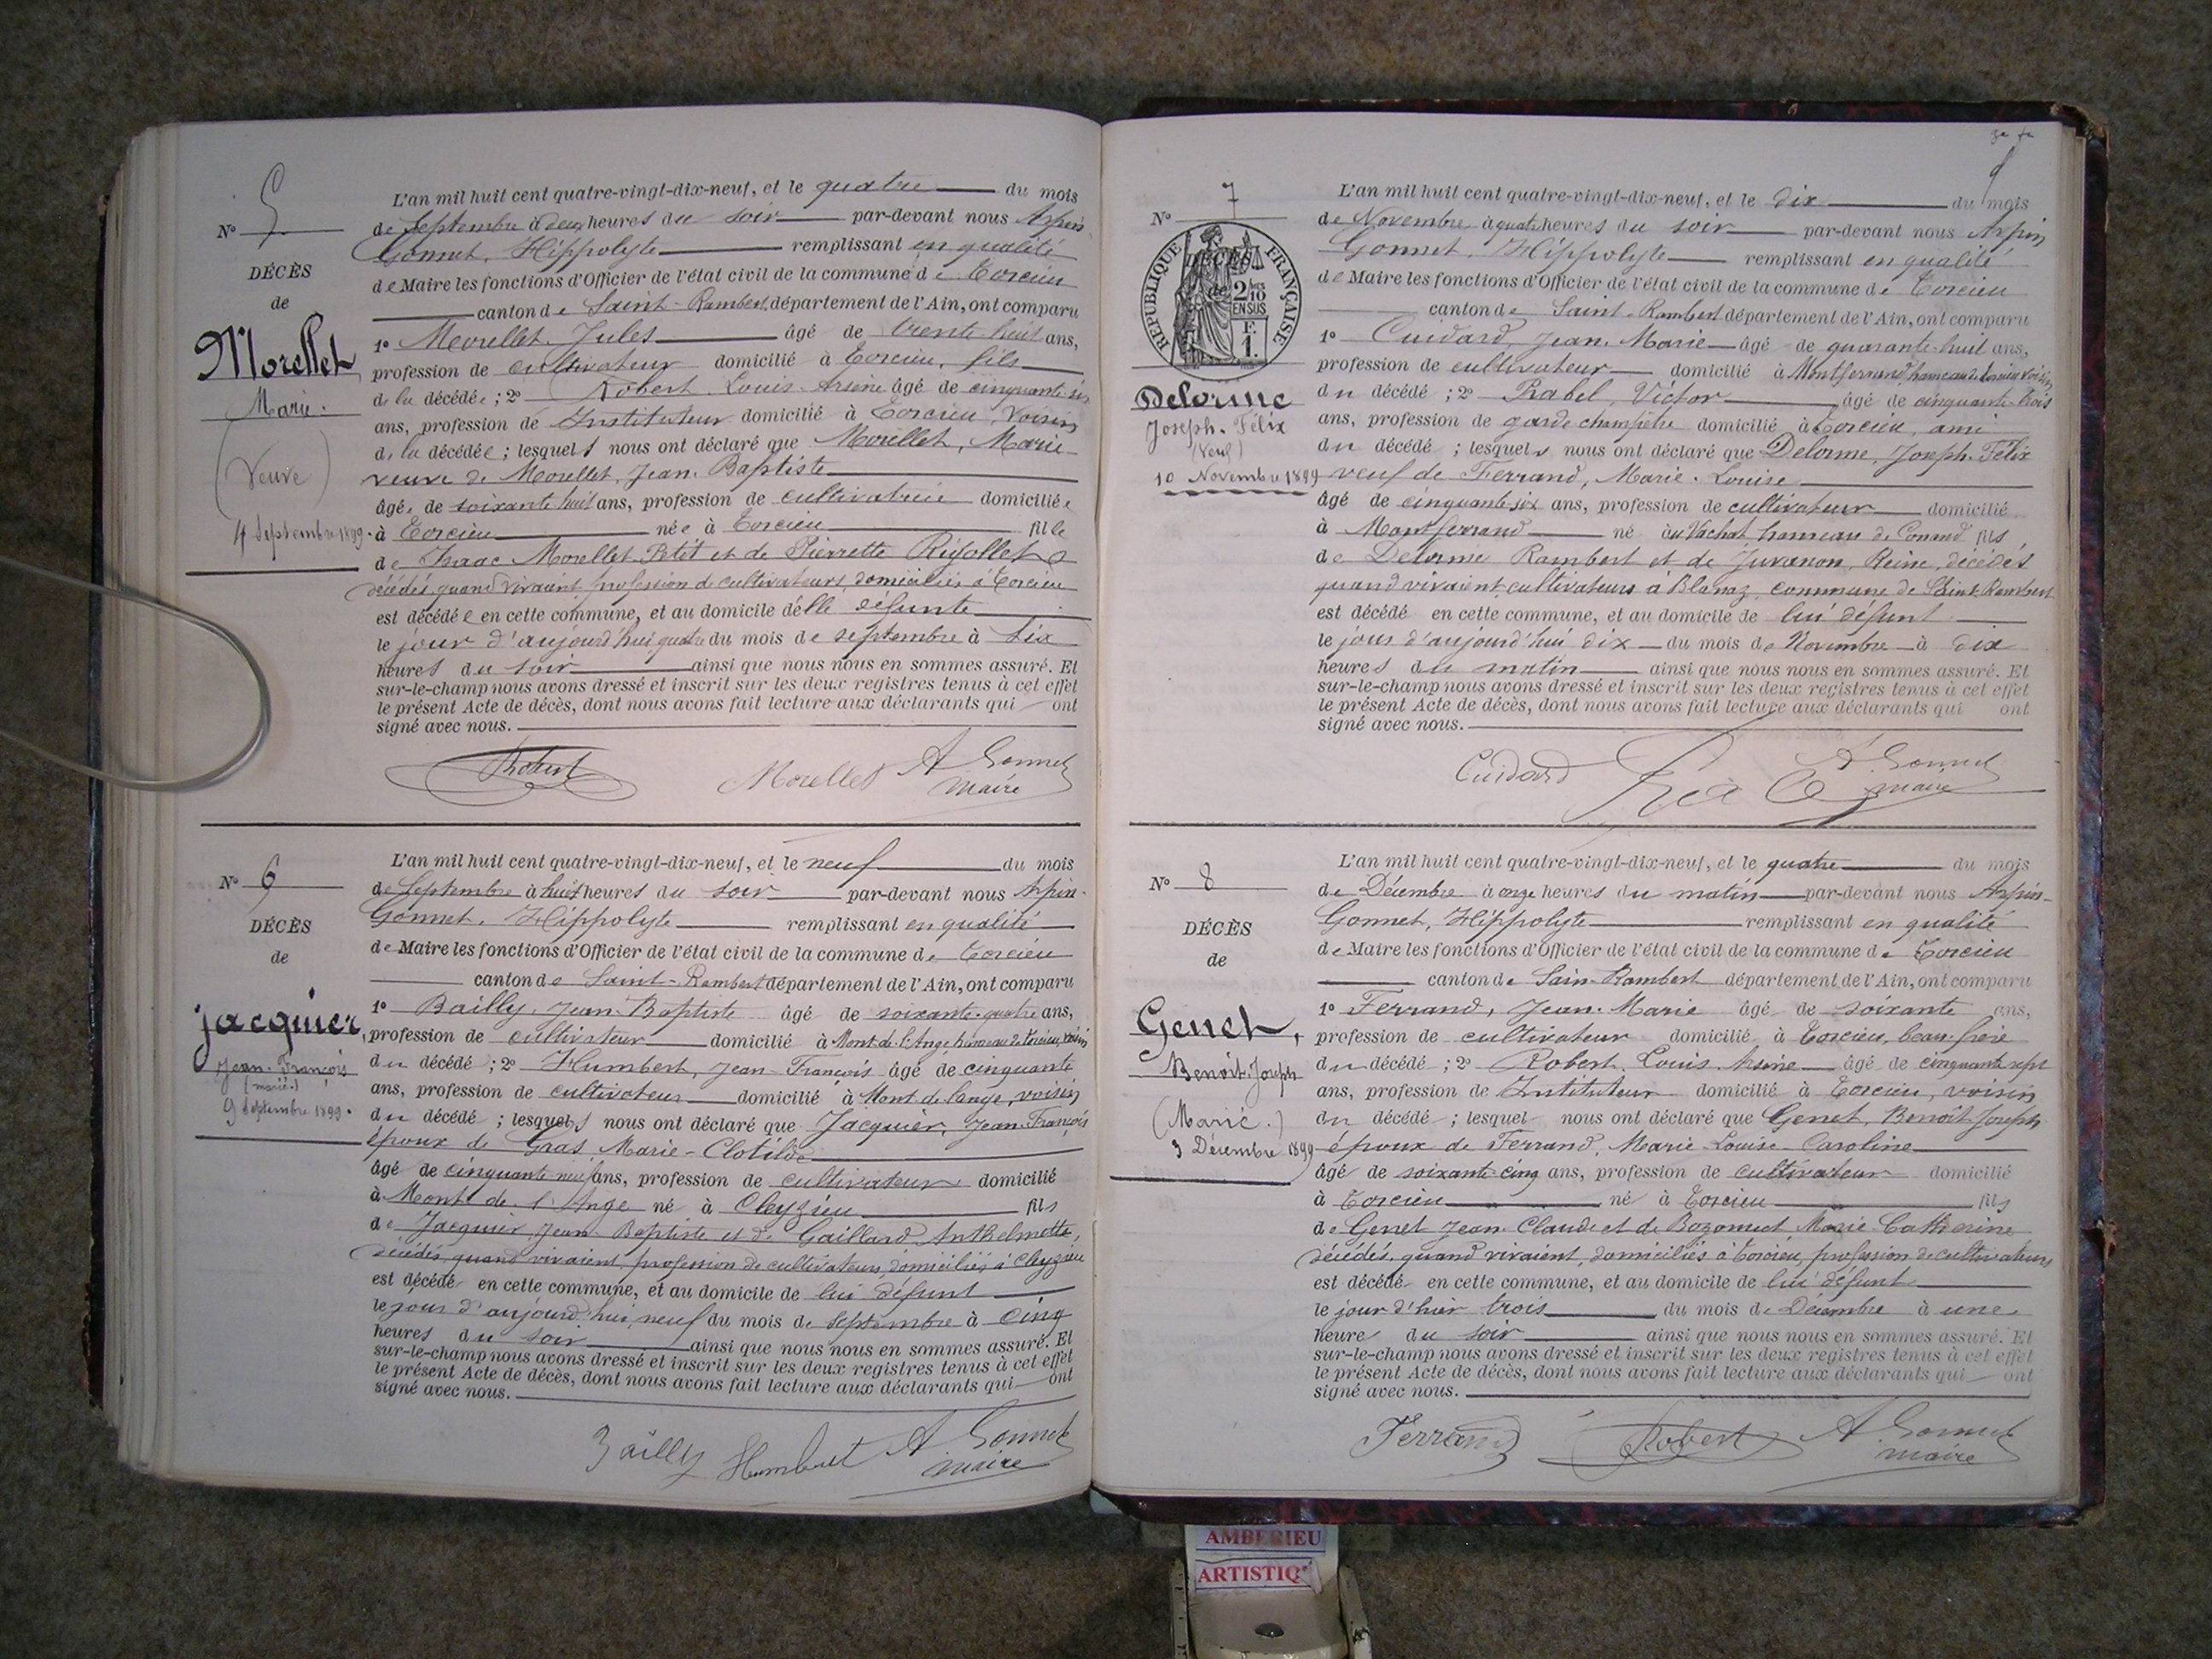 N° 5
DÉCÈS
de
Morellet
Marie.
(Veuve)
4 Septembre 1899.
L'an mil huit cent quatre-vingt-dix-neuf, et le quatre du mois
de Septembre à deux heures du soir par-devant nous Arpin
Gonnet, Hippolyte remplissant en qualité
de Maire les fonctions d'Officier de l'état civil de la commune de Torcieu
canton de Saint-Rambert, département de l'Ain, ont comparu
1° Morellet, Jules âgé de trente huit ans,
profession de cultivateur domicilié à Torcieu, fils
de la décédée ; 2° Robert Louis-Arsène âgé de cinquante-six
ans, profession de Instituteur domicilié à Torcieu, voisin
de la décédée ; lesquels nous ont déclaré que Morellet, Marie
veuve de Morellet, Jean-Baptiste
âgée de soixante huit ans, profession de cultivatrice domiciliée
à Torcieu née à Torcieu fille
de Isaac Morellet-Petit et de Pierrette Rigollet
décédés quand vivaient, profession de cultivateurs, domiciliés à Torcieu
est décédée en cette commune, et au domicile d'elle défunte
le jour d'aujourd'hui quatre du mois de septembre à six
heures du soir ainsi que nous nous en sommes assuré. Et
sur-le-champ nous avons dressé et inscrit sur les deux registres tenus à cet effet
le présent Acte de décès, dont nous avons fait lecture aux déclarants qui ont
signé avec nous.
Robert Morellet A Gonnet
maire
N° 6
DÉCÈS
de
Jacquier,
Jean-François
(marié)
9 Septembre 1899.
L'an mil huit cent quatre-vingt-dix-neuf, et le neuf du mois
de Septembre à huit heures du soir par-devant nous Arpin-
Gonnet, Hippolyte remplissant en qualité
de Maire les fonctions d'Officier de l'état civil de la commune de Torcieu
canton de Saint-Rambert département de l'Ain, ont comparu
1° Bailly, Jean-Baptiste âgé de soixante-quatre ans,
profession de cultivateur domicilié à Mont-de-l'Ange hameau de Torcieu, voisin
du décédé ; 2° Humbert, Jean-François âgé de cinquante
ans, profession de cultivateur domicilié à Mont de lange, voisin
du décédé ; lesquels nous ont déclaré que Jacquier, Jean-François
époux de Gras Marie-Clotilde
âgé de cinquante neuf ans, profession de cultivateur domicilié
à Mont de l'Ange né à Cleyzieu fils
de Jacquier, Jean-Baptiste et de Gaillard Anthelmette,
décédés quand vivaient, profession de cultivateurs, domiciliés à Cleyzieu
est décédé en cette commune, et au domicile de lui défunt
le jour d'aujourd'hui, neuf du mois de Septembre à cinq
heures du soir ainsi que nous nous en sommes assuré. Et
sur-le-champ nous avons dressé et inscrit sur les deux registres tenus à cet effet
le présent Acte de décès, dont nous avons fait lecture aux déclarants qui ont
signé avec nous.
Bailly Humbert A. Gonnet
maire
N° 7
RÉPUBLIQUE FRANÇAISE
DÉCÈS
de
2/10
EN SUS
F.
1.
Delorme
Joseph-Félix
(Veuf)
10 Novembre 1899
L'an mil huit cent quatre-vingt-dix-neuf, et le dix du mois
de Novembre à quatre heures du soir par-devant nous Arpin
Gonnet, Hippolyte remplissant en qualité
de Maire les fonctions d'Officier de l'état civil de la commune de Torcieu
canton de Saint-Rambert département de l'Ain, ont comparu
1° Cuidard, Jean-Marie âgé de quarante-huit ans,
profession de cultivateur domicilié à Montferrand, hameau de Torcieu, voisin
du décédé ; 2° Rabel, Victor âgé de cinquante-trois
ans, profession de garde champêtre domicilié à Torcieu, ami
du décédé ; lesquels nous ont déclaré que Delorme, Joseph-Félix
veuf de Ferrand, Marie-Louise
âgé de cinquante-six ans, profession de cultivateur domicilié
à Montferrand né au Vachat, hameau de Conand fils
de Delorme Rambert et de Juvanon, Reine, décédés
quand vivaient, cultivateurs à Blanaz, commune de Saint-Rambert
est décédé en cette commune, et au domicile de lui défunt
le jour d'aujourd'hui dix du mois de Novembre à dix
heures du matin ainsi que nous nous en sommes assuré. Et
sur-le-champ nous avons dressé et inscrit sur les deux registres tenus à cet effet
le présent Acte de décès, dont nous avons fait lecture aux déclarants qui ont
signé avec nous.
Cuidard A. Gonnet
maire
N° 8
DÉCÈS
de
Genet,
Benoît-Joseph
(Marié.)
3 Décembre 1899
L'an mil huit cent quatre-vingt-dix-neuf, et le quatre du mois
de Décembre à onze heures du matin par-devant nous Arpin-
Gonnet, Hippolyte remplissant en qualité
de Maire les fonctions d'Officier de l'état civil de la commune de Torcieu
canton de Sain-Rambert département de l'Ain, ont comparu
1° Ferrand, Jean-Marie âgé de soixante ans,
profession de cultivateur domicilié à Torcieu, beau-frère
du décédé ; 2° Robert, Louis-Arsène âgé de cinquante sept
ans, profession de Instituteur domicilié à Torcieu, voisin
du décédé ; lesquel nous ont déclaré que Genet, Benoît-Joseph
époux de Ferrand, Marie-Louise-Caroline
âgé de soixante-cinq ans, profession de cultivateur domicilié
à Torcieu né à Torcieu fils
de Genet Jean-Claude et de Bozonnet Marie-Catherine
décédés, quand vivaient, domiciliés à Torcieu, profession de cultivateurs
est décédé en cette commune, et au domicile de lui défunt
le jour d'hier trois du mois de Décembre à une
heure du soir ainsi que nous nous en sommes assuré. Et
sur-le-champ nous avons dressé et inscrit sur les deux registres tenus à cet effet
le présent Acte de décès, dont nous avons fait lecture aux déclarants qui ont
signé avec nous.
Ferrand Robert A Gonnet
maire
AMBERIEU
ARTISTIQ